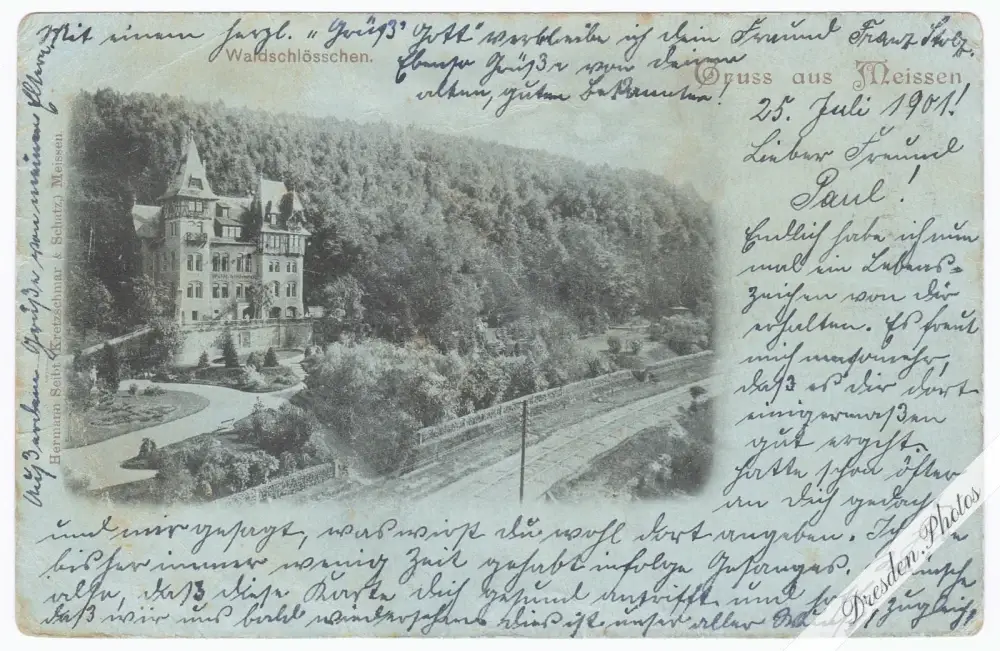 Waldschlösschen.
Gruss aus Meissen
25. Juli 1901!
Lieber Freund
Paul!
Endlich habe ich nun
mal ein Lebens-
zeichen von Dir
erhalten. Es freut
mich umsomehr,
daß es dir dort
einigermaßen
gut ergeht.
Hatte schon öfter
an Dich gedacht
und mir gesagt, was wirst du wohl dort angeben. Ich
bisher immer wenig Zeit gehabt infolge Gesanges.
also, daß diese Karte dich gesund antrifft und zugleich,
daß wir uns bald wiedersehen. Dies ist unser aller
Mit einem herzl. „Grüß' Gott" verbleibe ich dein Freund Franz Stolz.
Ebenso Grüße von deinen
alten, guten Bekannten!
Außerdem Grüße von meinen Eltern
Hermann Seibt (Kretzschmar & Schatz) Meissen.
Dresden.Photos